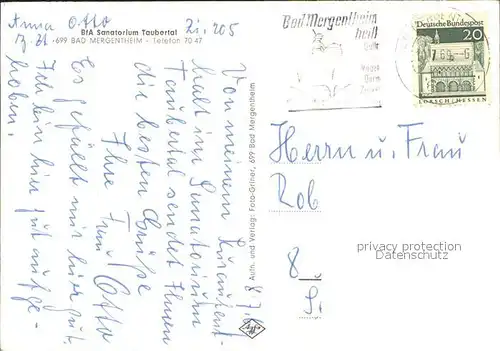 Anna Otto
z. Zt. Zi. 205
BfA Sanatorium Taubertal
699 BAD MERGENTHEIM - Telefon 70 47
Von meinem Kuraufent-
halt im Sanatorium
Taubertal sendet Ihnen
die besten Grüße
Ihre Frau Otto
Es gefällt mir hier gut.
Ich bin hier gut aufge-
hoben.
Aufn. und Verlag: Foto-Griner, 699 Bad Mergentheim
Bad Mergentheim
heilt
Galle
Magen
Darm
Deutsche Bundespost
20
LORSCH/HESSEN
Herrn u. Frau
Rob
8
privacy protection
Datenschutz